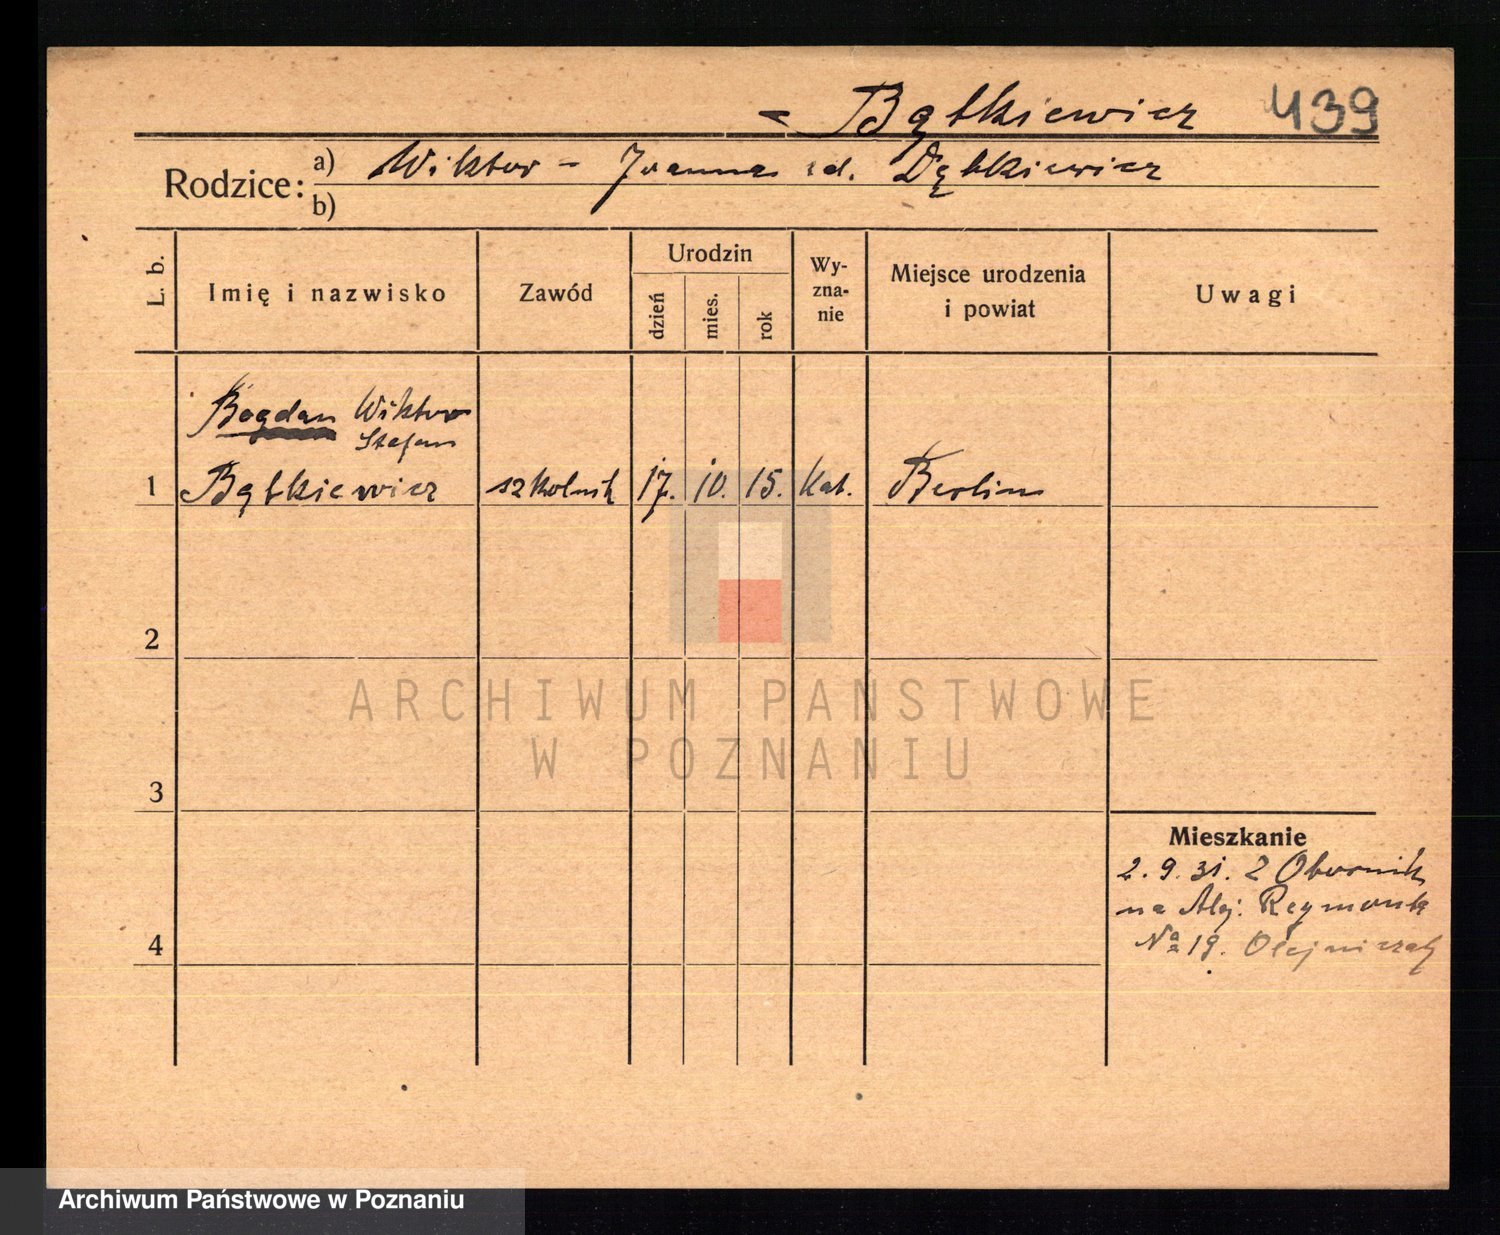 Bątkiewicz 439
Rodzice: a) Wiktor - Joanna zd. Dętkiewicz
b)
L. b.
Imię i nazwisko
Zawód
Urodzin
dzień
mies.
rok
Wy-
zna-
nie
Miejsce urodzenia
i powiat
Uwagi
Bogdan Wiktor
Stefan
1 Bątkiewicz szkolnik 17. 10. 15. Kat. Berlin
2
3
4
Mieszkanie
2. 9. 31. Z Obornik
na Alej. Reymonta
No 19. Olejniczak
ARCHIWUM PAŃSTWOWE
W POZNANIU
Archiwum Państwowe w Poznaniu